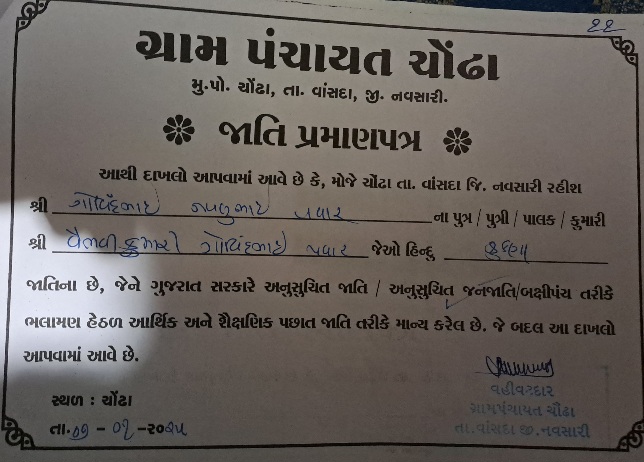 22
ગ્રામ પંચાયત ચોંઢા
મુ.પો. ચોંઢા, તા. વાંસદા, જી. નવસારી.
જાતિ પ્રમાણપત્ર
આથી દાખલો આપવામાં આવે છે કે, મોજે ચોંઢા તા. વાંસદા જિ. નવસારી રહીશ
શ્રી ગોવિંદભાઈ પવાર ના પુત્ર / પુત્રી / પાલક / કુમારી
શ્રી વૈભવીકુમારી ગોવિંદભાઈ પવાર જેઓ હિન્દુ કુકણા
જાતિના છે, જેને ગુજરાત સરકારે અનુસુચિત જાતિ / અનુસુચિત જનજાતિ/બક્ષીપંચ તરીકે
ભલામણ હેઠળ આર્થિક અને શૈક્ષણિક પછાત જાતિ તરીકે માન્ય કરેલ છે. જે બદલ આ દાખલો
આપવામાં આવે છે.
વહીવટદાર
સ્થળ : ચોંઢા
ગ્રામપંચાયત ચોંઢા
તા. - ૦૧ -૨૦૨૫
તા.વાંસદા જી.નવસારી